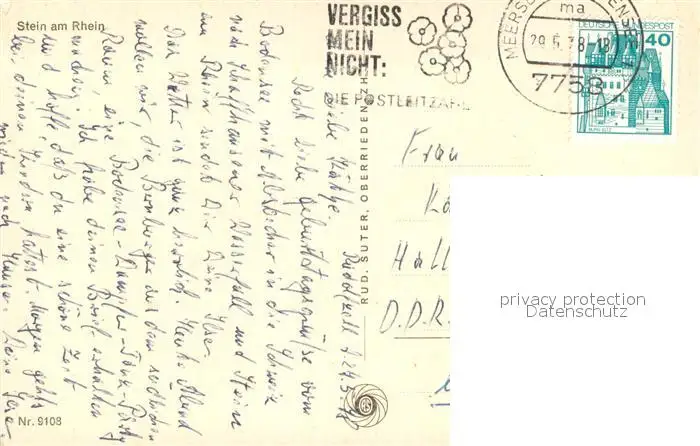 Stein am Rhein
VERGISS
MEIN
NICHT:
DIE POSTLEITZAHL
MEERSBURG
ma
29.5.78-18
7758
DEUTSCHE BUNDESPOST
40
BURG ELTZ
Radolfzell d. 27.5.78
Liebe Käthe.
Recht liebe Geburtstagsgrüße vom
Bodensee mit Abstecher in die Schweiz
nach Schaffhausener Wasserfall und Stein
am Rhein sendet Dir Deine Ilse.
Das Wetter ist ganz herrlich. Heute Abend
wollen wir, die
Raum eine Bodensee-Dampfer-Tanz-Party
machen. Ich habe deinen Brief erhalten
und hoffe, daß du eine schöne Zeit
bei deinen Kindern hattest. Morgen gehts
wieder nach Hause. Deine Ilse
RUD. SUTER, OBERRIEDEN-ZH
Frau
Hall
D.D.R.
privacy protection
Datenschutz
Nr. 9108